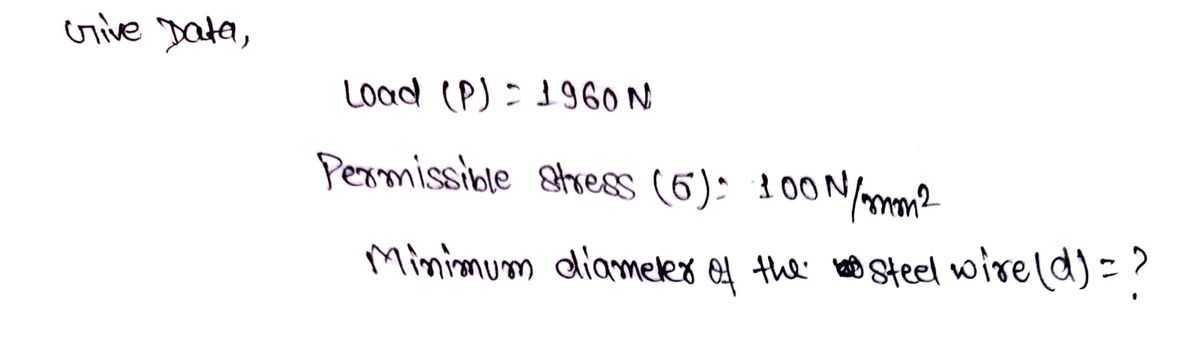 Give Data,
Load (P) = 1960 N
Permissible stress (σ) = 100 N/mm²
Minimum diameter of the steel wire (d) = ?